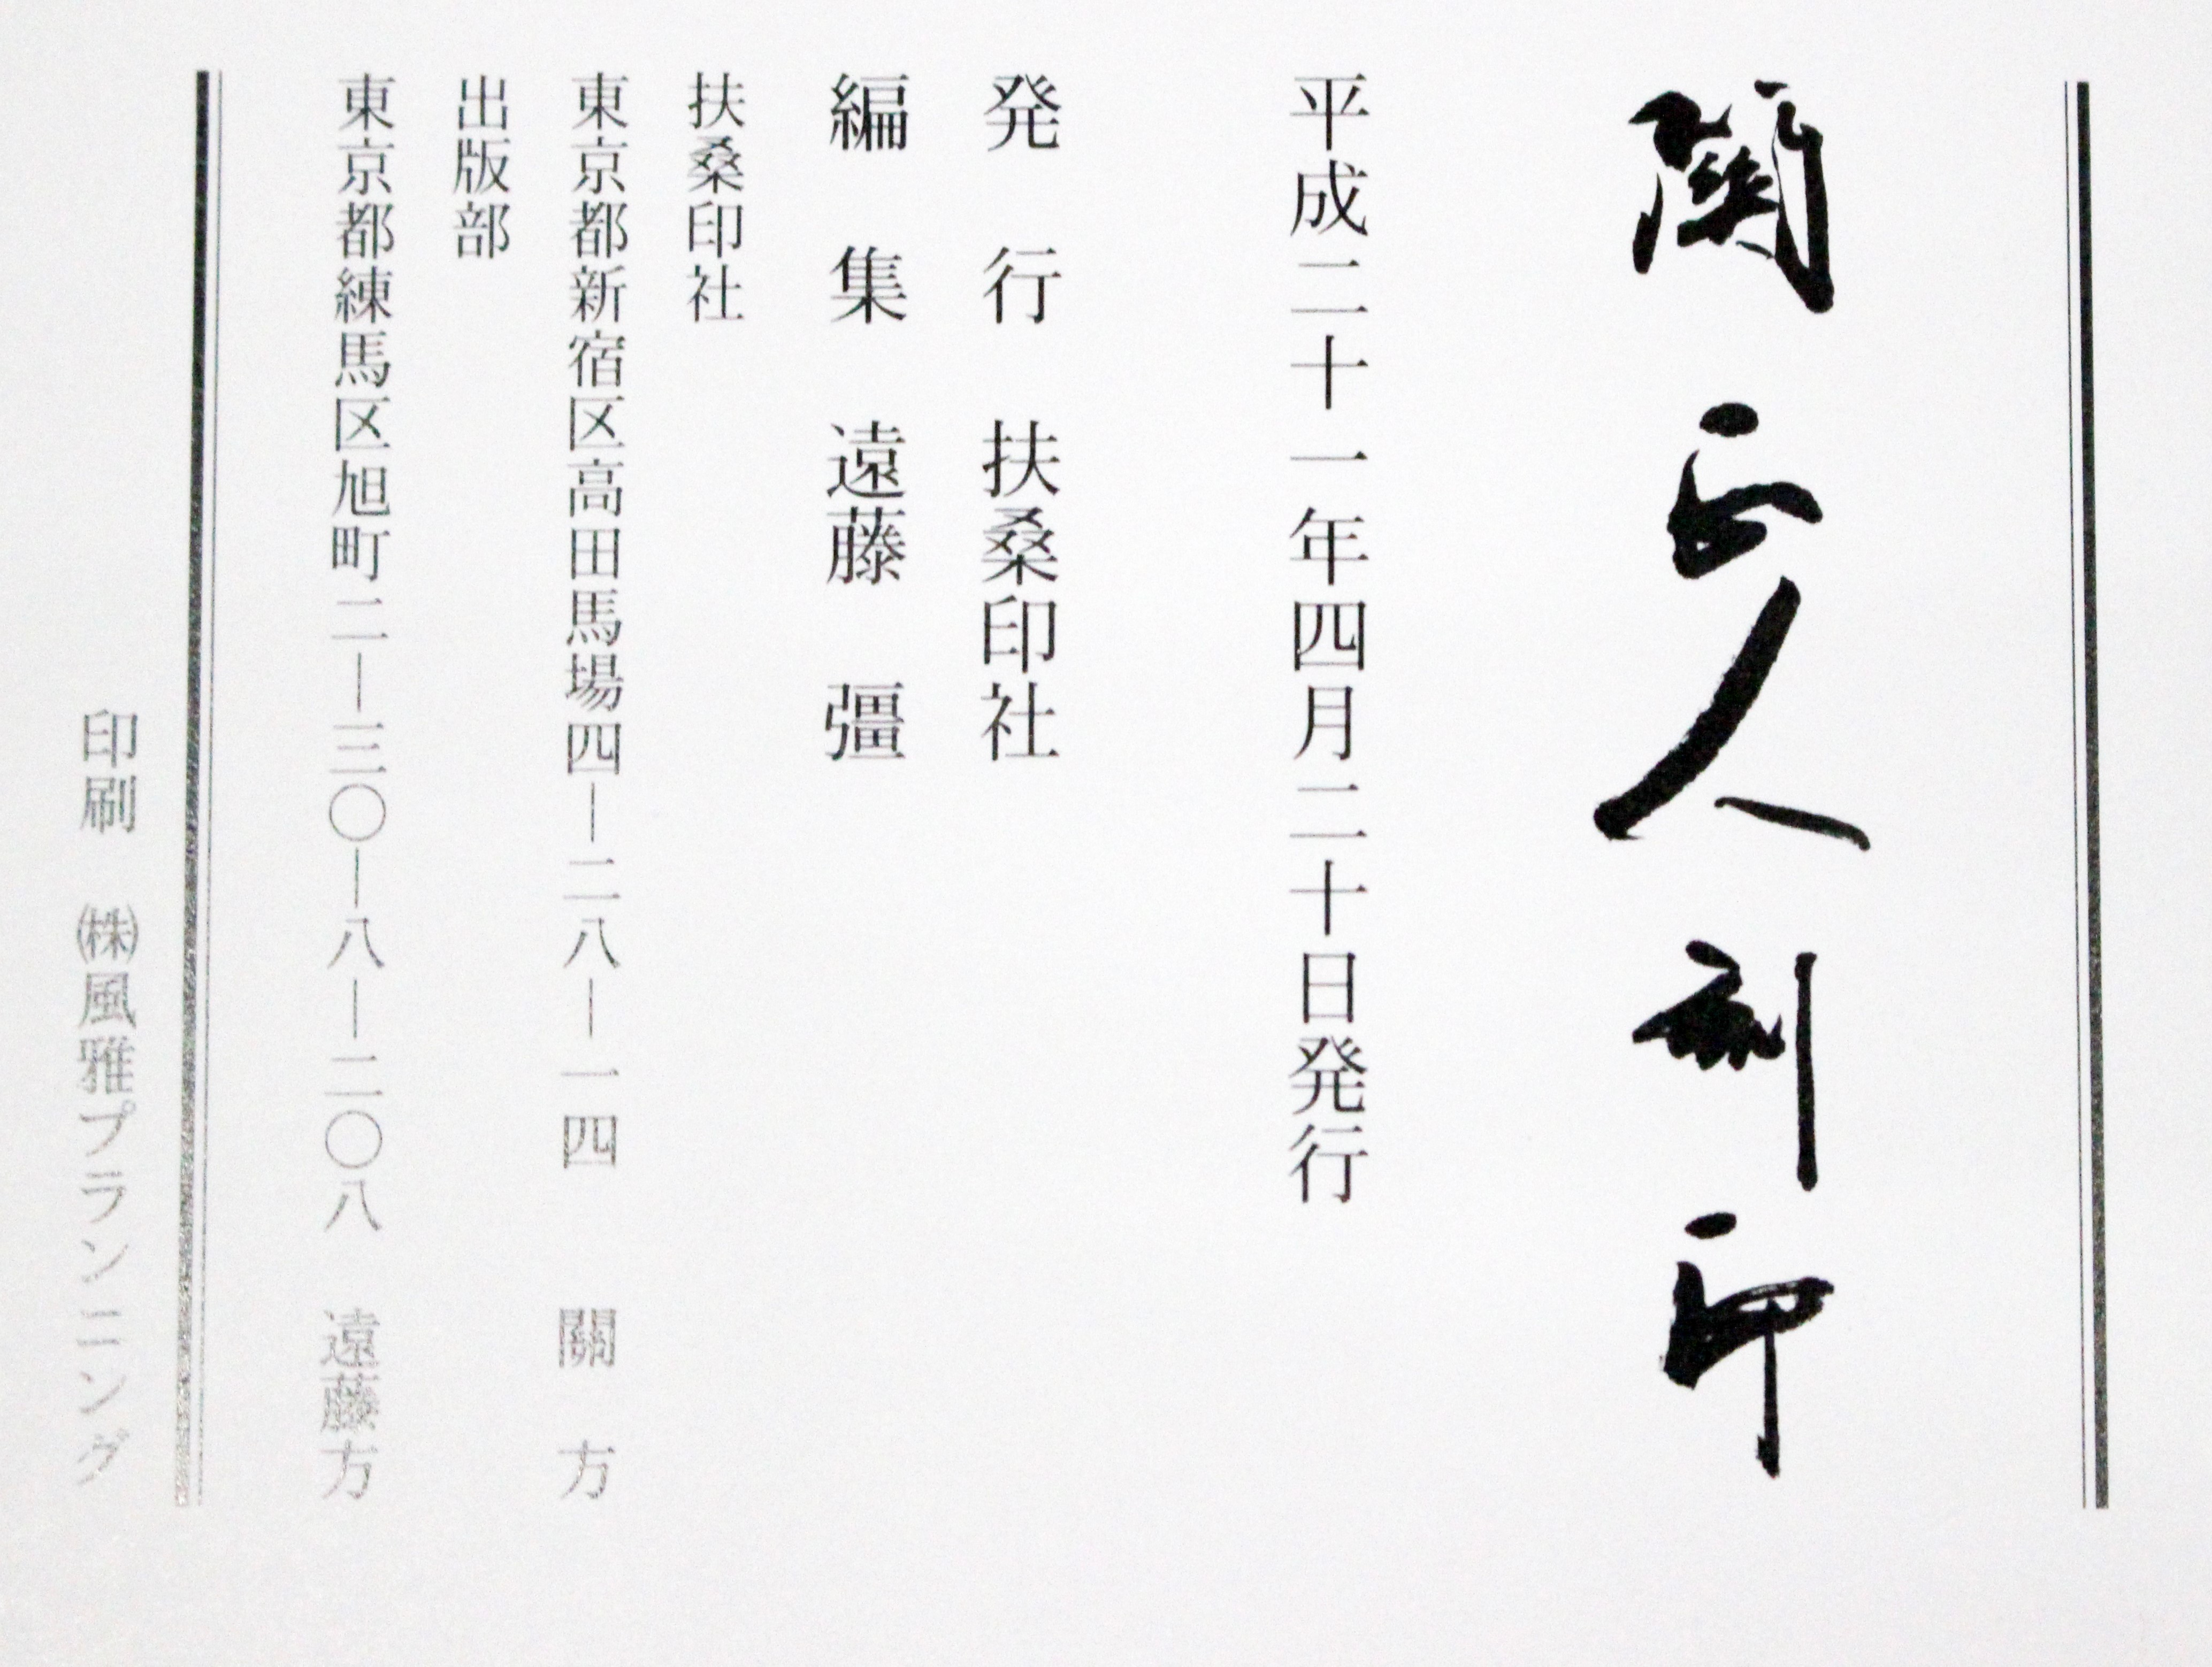 關正人刻印
平成二十一年四月二十日発行
発行 扶桑印社
編集 遠藤 彊
扶桑印社
東京都新宿区高田馬場四―二八―一四 關 方
出版部
東京都練馬区旭町二―三〇―八―二〇八 遠藤方
印刷 ㈱風雅プランニング